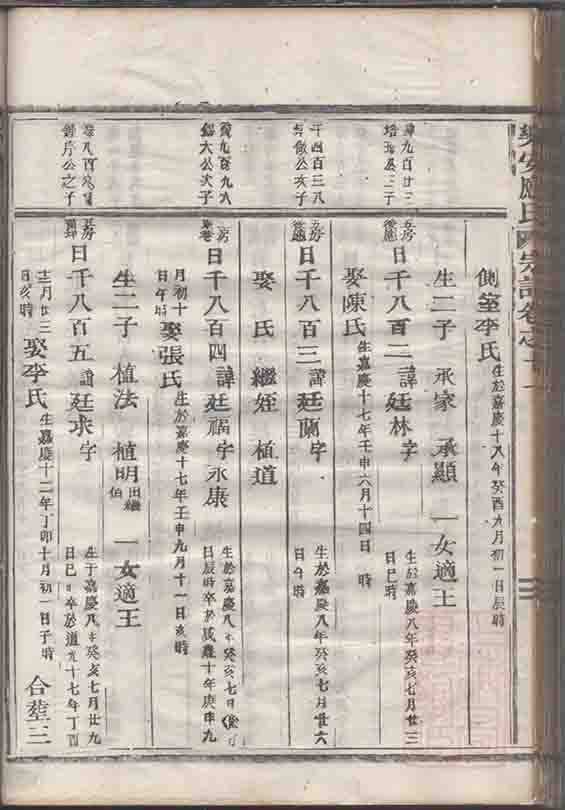 側室李氏 生於嘉慶十八年癸酉九月初一日辰時
生二子 承家 承顯 一女適王
九百廿三
日千八百二 諱廷林 字 生於嘉慶八年癸亥七月廿三
日巳時
娶陳氏 生嘉慶十七年壬申六月十四日 時
千四百三八
公次子
日千八百三 諱廷蘭 字 生於嘉慶八年癸亥七月廿六
日午時
娶 氏 繼姪 植道
九百九八
紹大公次子
日千八百四 諱廷福 字永康 生於嘉慶八年癸亥七
日辰時卒於咸豐十年庚申九
月初十
日午時
娶張氏 生於嘉慶十七年壬申九月十一日亥時
生二子 植法 植明 出繼
伯 一女適王
八百
公之子
日千八百五 諱廷求 字 生于嘉慶八年癸亥七月廿九
日巳時卒於道光十七年丁酉
十二月廿三
日亥時
娶李氏 生嘉慶十二年丁卯十月初一日子時 合塟三